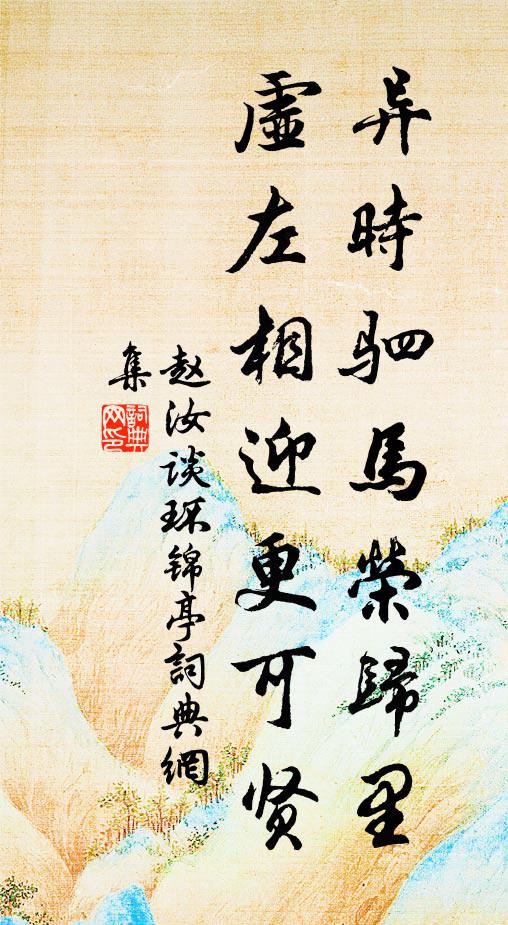 异時驷馬榮歸里
虚左相迎更可贤
赵汝谈环锦亭詞典網
集
詞典网印